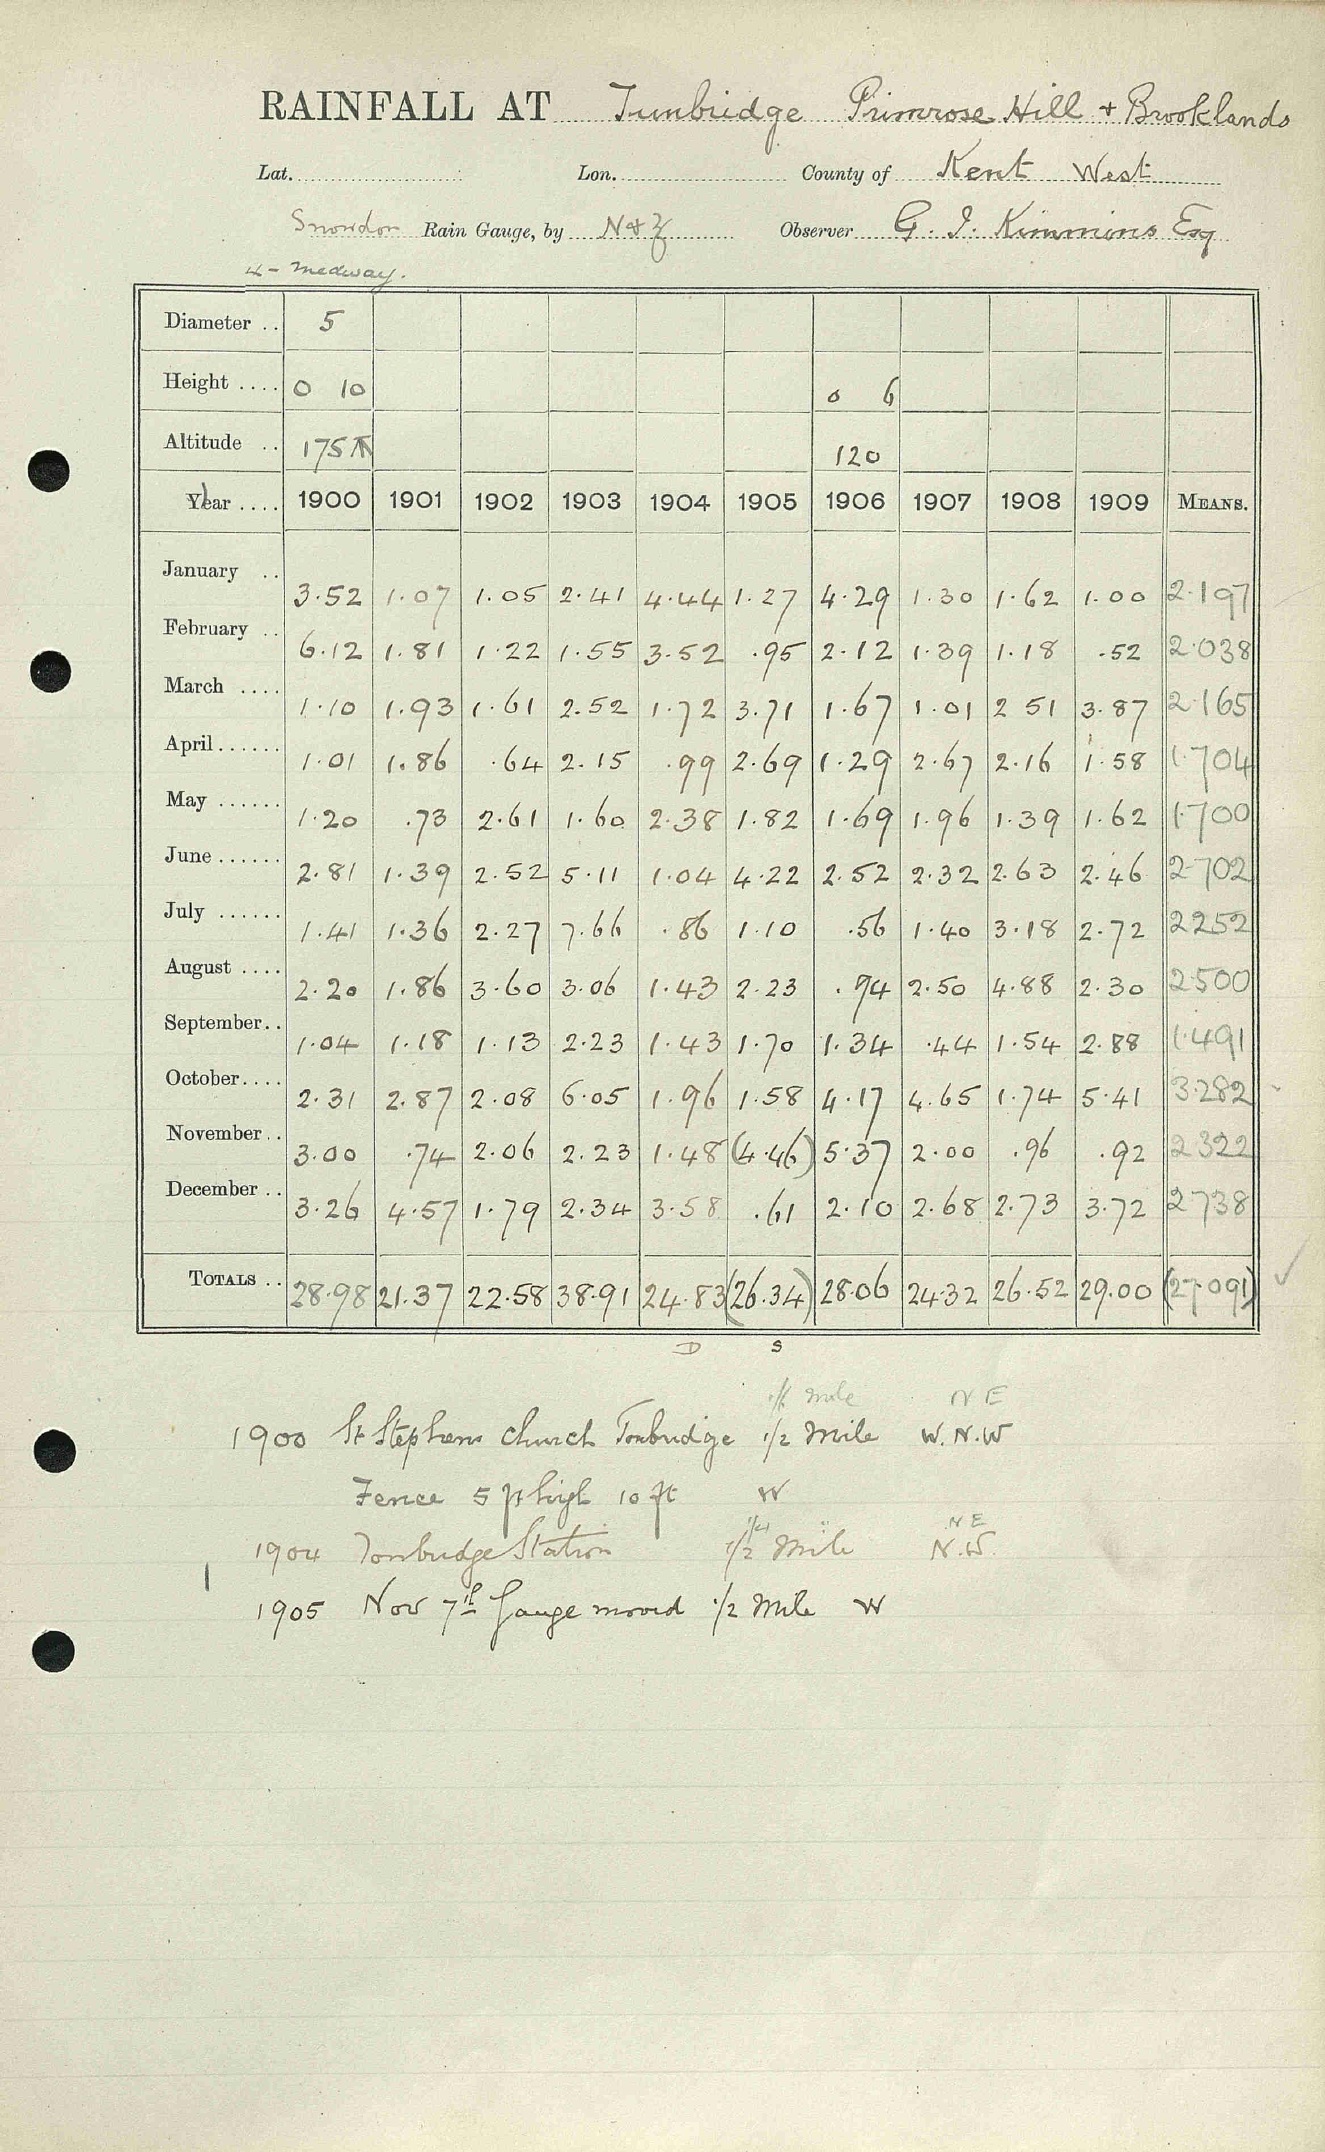 RAINFALL AT Tunbridge Primrose Hill + Brooklands
Lat. Lon. County of Kent West
Snowdon Rain Gauge, by N & Z Observer G. I. Kimmins Esq
4 - Medway.
Diameter .. 5
Height .... 0 10 0 6
Altitude .. 175 120
Year .... 1900 1901 1902 1903 1904 1905 1906 1907 1908 1909 MEANS.
January .. 3.52 1.07 1.05 2.41 4.44 1.27 4.29 1.30 1.62 1.00 2.197
February .. 6.12 1.81 1.22 1.55 3.52 .95 2.12 1.39 1.18 .52 2.038
March .... 1.10 1.93 1.61 2.52 1.72 3.71 1.67 1.01 2 51 3.87 2.165
April ...... 1.01 1.86 .64 2.15 .99 2.69 1.29 2.67 2.16 1.58 1.704
May ...... 1.20 .73 2.61 1.60 2.38 1.82 1.69 1.96 1.39 1.62 1.700
June ...... 2.81 1.39 2.52 5.11 1.04 4.22 2.52 2.32 2.63 2.46 2.702
July ...... 1.41 1.36 2.27 7.66 .86 1.10 .56 1.40 3.18 2.72 2252
August .... 2.20 1.86 3.60 3.06 1.43 2.23 .94 2.50 4.88 2.30 2.500
September.. 1.04 1.18 1.13 2.23 1.43 1.70 1.34 .44 1.54 2.88 1.491
October.... 2.31 2.87 2.08 6.05 1.96 1.58 4.17 4.65 1.74 5.41 3.282
November.. 3.00 .74 2.06 2.23 1.48 (4.46) 5.37 2.00 .96 .92 2322
December .. 3.26 4.57 1.79 2.34 3.58 .61 2.10 2.68 2.73 3.72 2.738
TOTALS .. 28.98 21.37 22.58 38.91 24.83 (26.34) 28.06 24.32 26.52 29.00 (27.091)
D S
Mile N E
1900 St Stephens Church Tonbridge 1/2 Mile W.N.W
Fence 5 ft high 10 ft W
1/4 " N E
1904 Tonbridge Station 1/2 Mile N.W.
1905 Nov 7th Gauge moved 1/2 Mile W